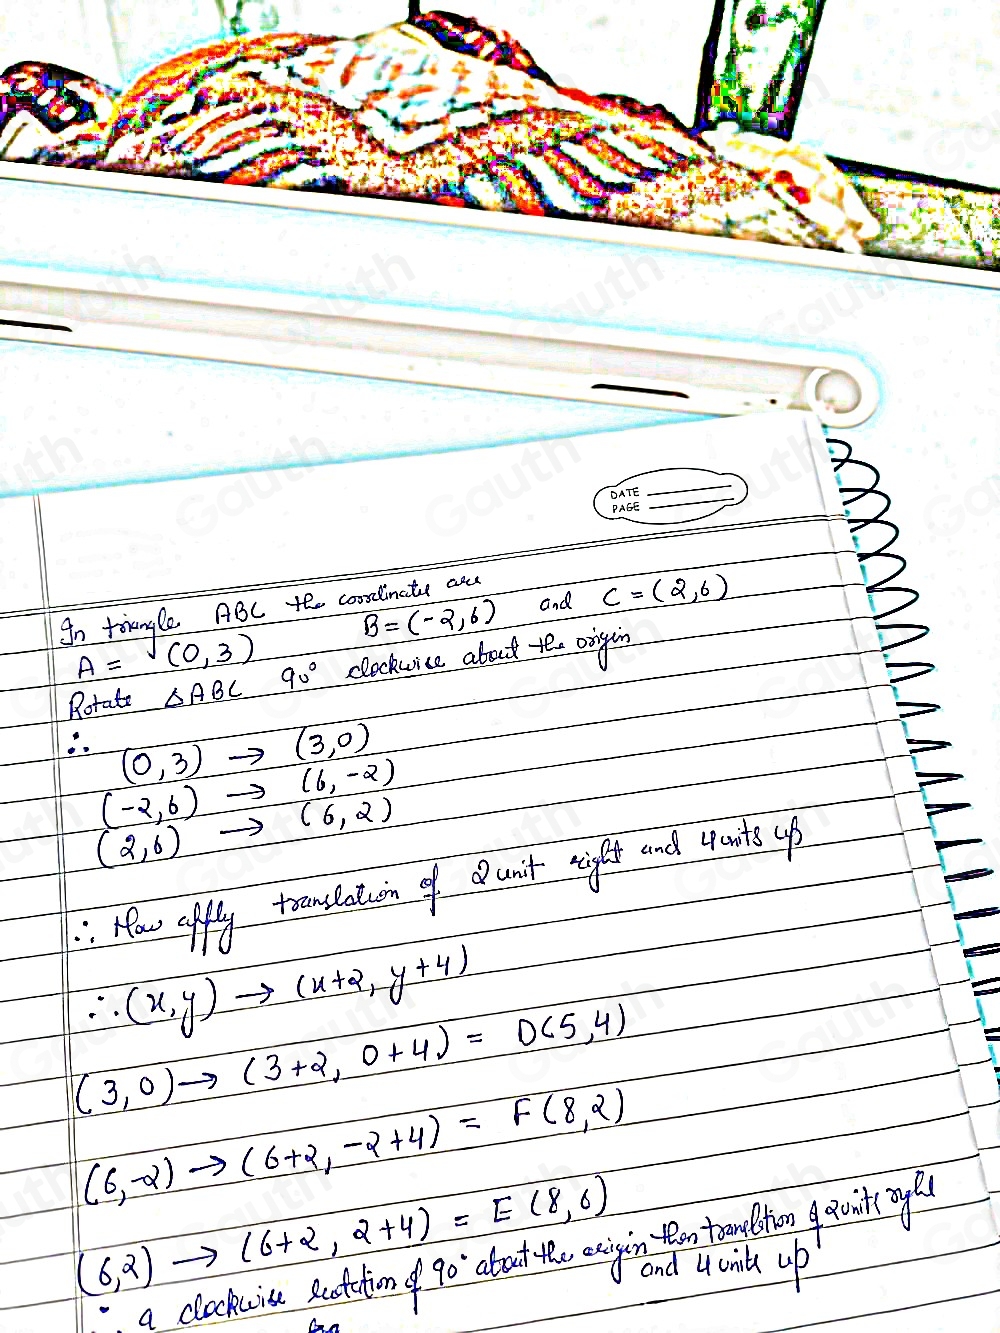 DATE
PAGE
In triangle ABC the coordinate are
A = (0,3) B = (-2,6) and C = (2,6)
Rotate △ABC 90° clockwise about the origin
∴
(0,3) → (3,0)
(-2,6) → (6,-2)
(2,6) → (6,2)
∴ Now apply translation of 2 unit right and 4 units up
∴ (x,y) → (x+2, y+4)
(3,0) → (3+2, 0+4) = D(5,4)
(6,-2) → (6+2, -2+4) = F(8,2)
(6,2) → (6+2, 2+4) = E(8,6)
∴ a clockwise rotation of 90° about the origin then translation of 2 units right
and 4 units up